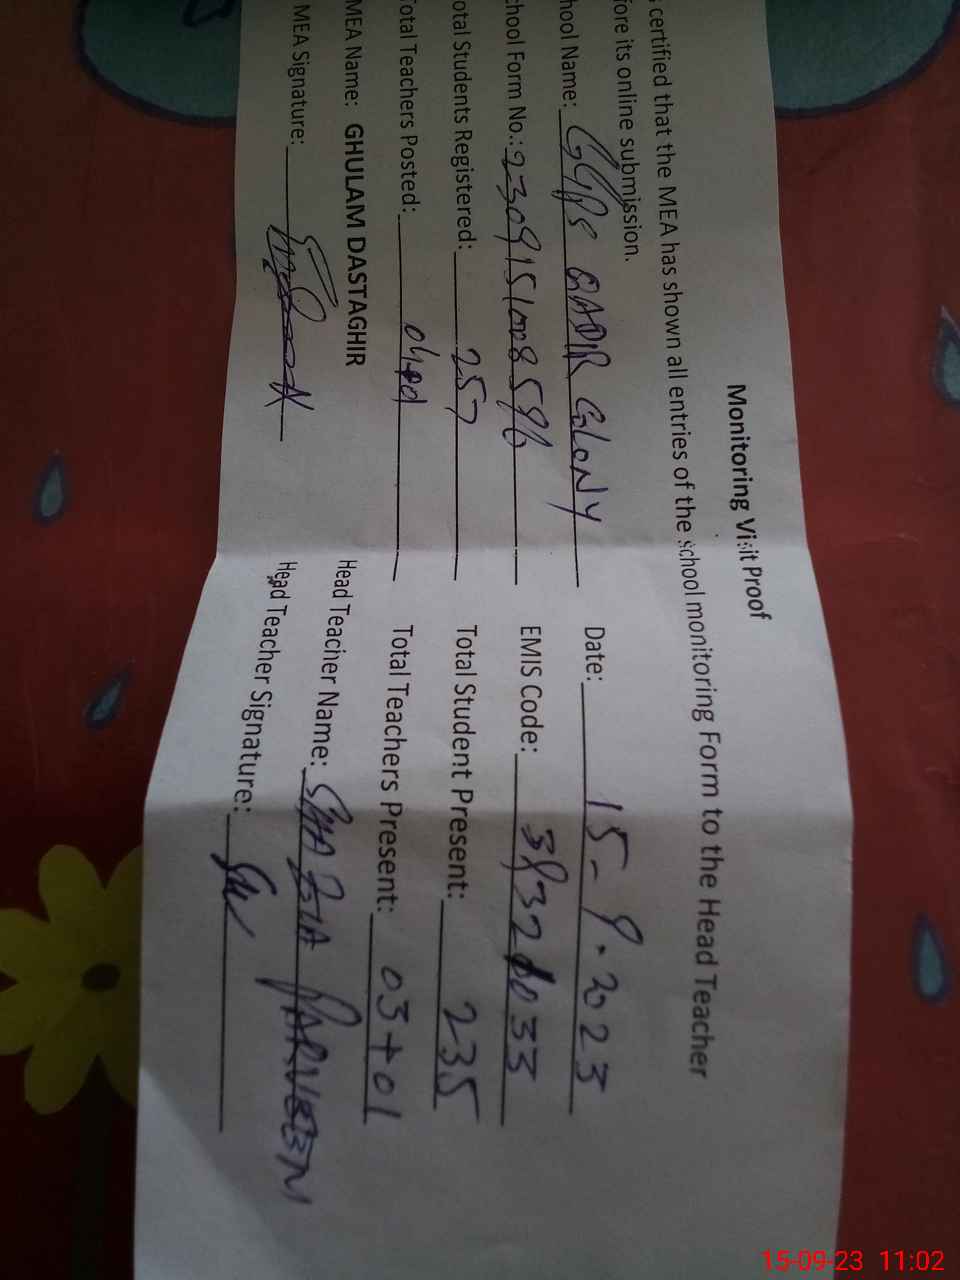 Monitoring Visit Proof
certified that the MEA has shown all entries of the school monitoring Form to the Head Teacher
fore its online submission.
hool Name: GGPS QADIR COLONY Date: 15-9-2023
chool Form No.: EMIS Code:
otal Students Registered: 257 Total Student Present: 235
otal Teachers Posted: 04+01 Total Teachers Present: 03+01
MEA Name: GHULAM DASTAGHIR Head Teacher Name: SHAZIA PARVEEN
MEA Signature: Head Teacher Signature:
15-09-23 11:02